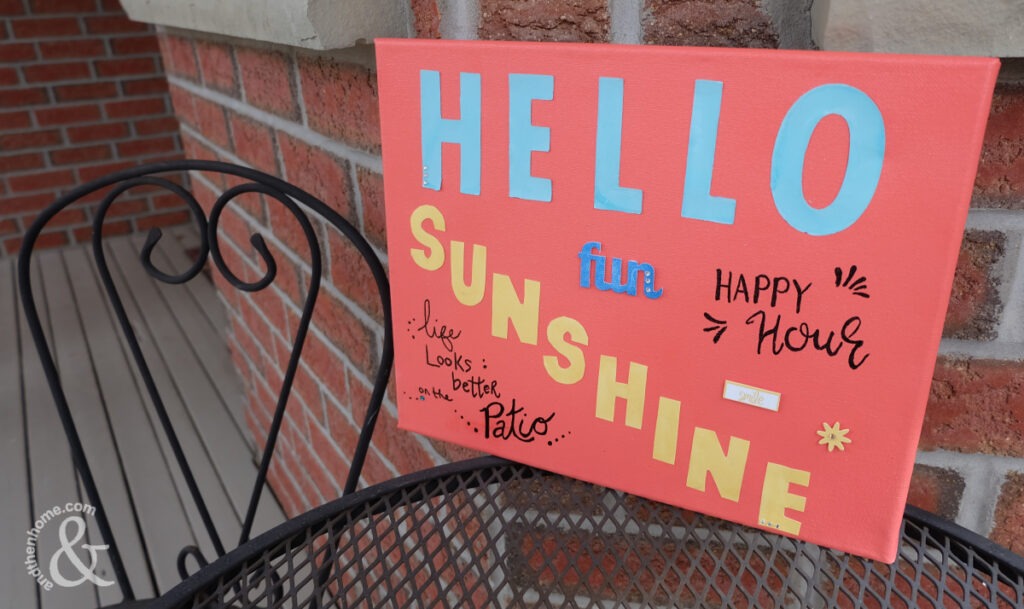 HELLO
SUNSHINE
fun
HAPPY
Hour
life
Looks:
better
on the
Patio
smile
andthenhome.com
&